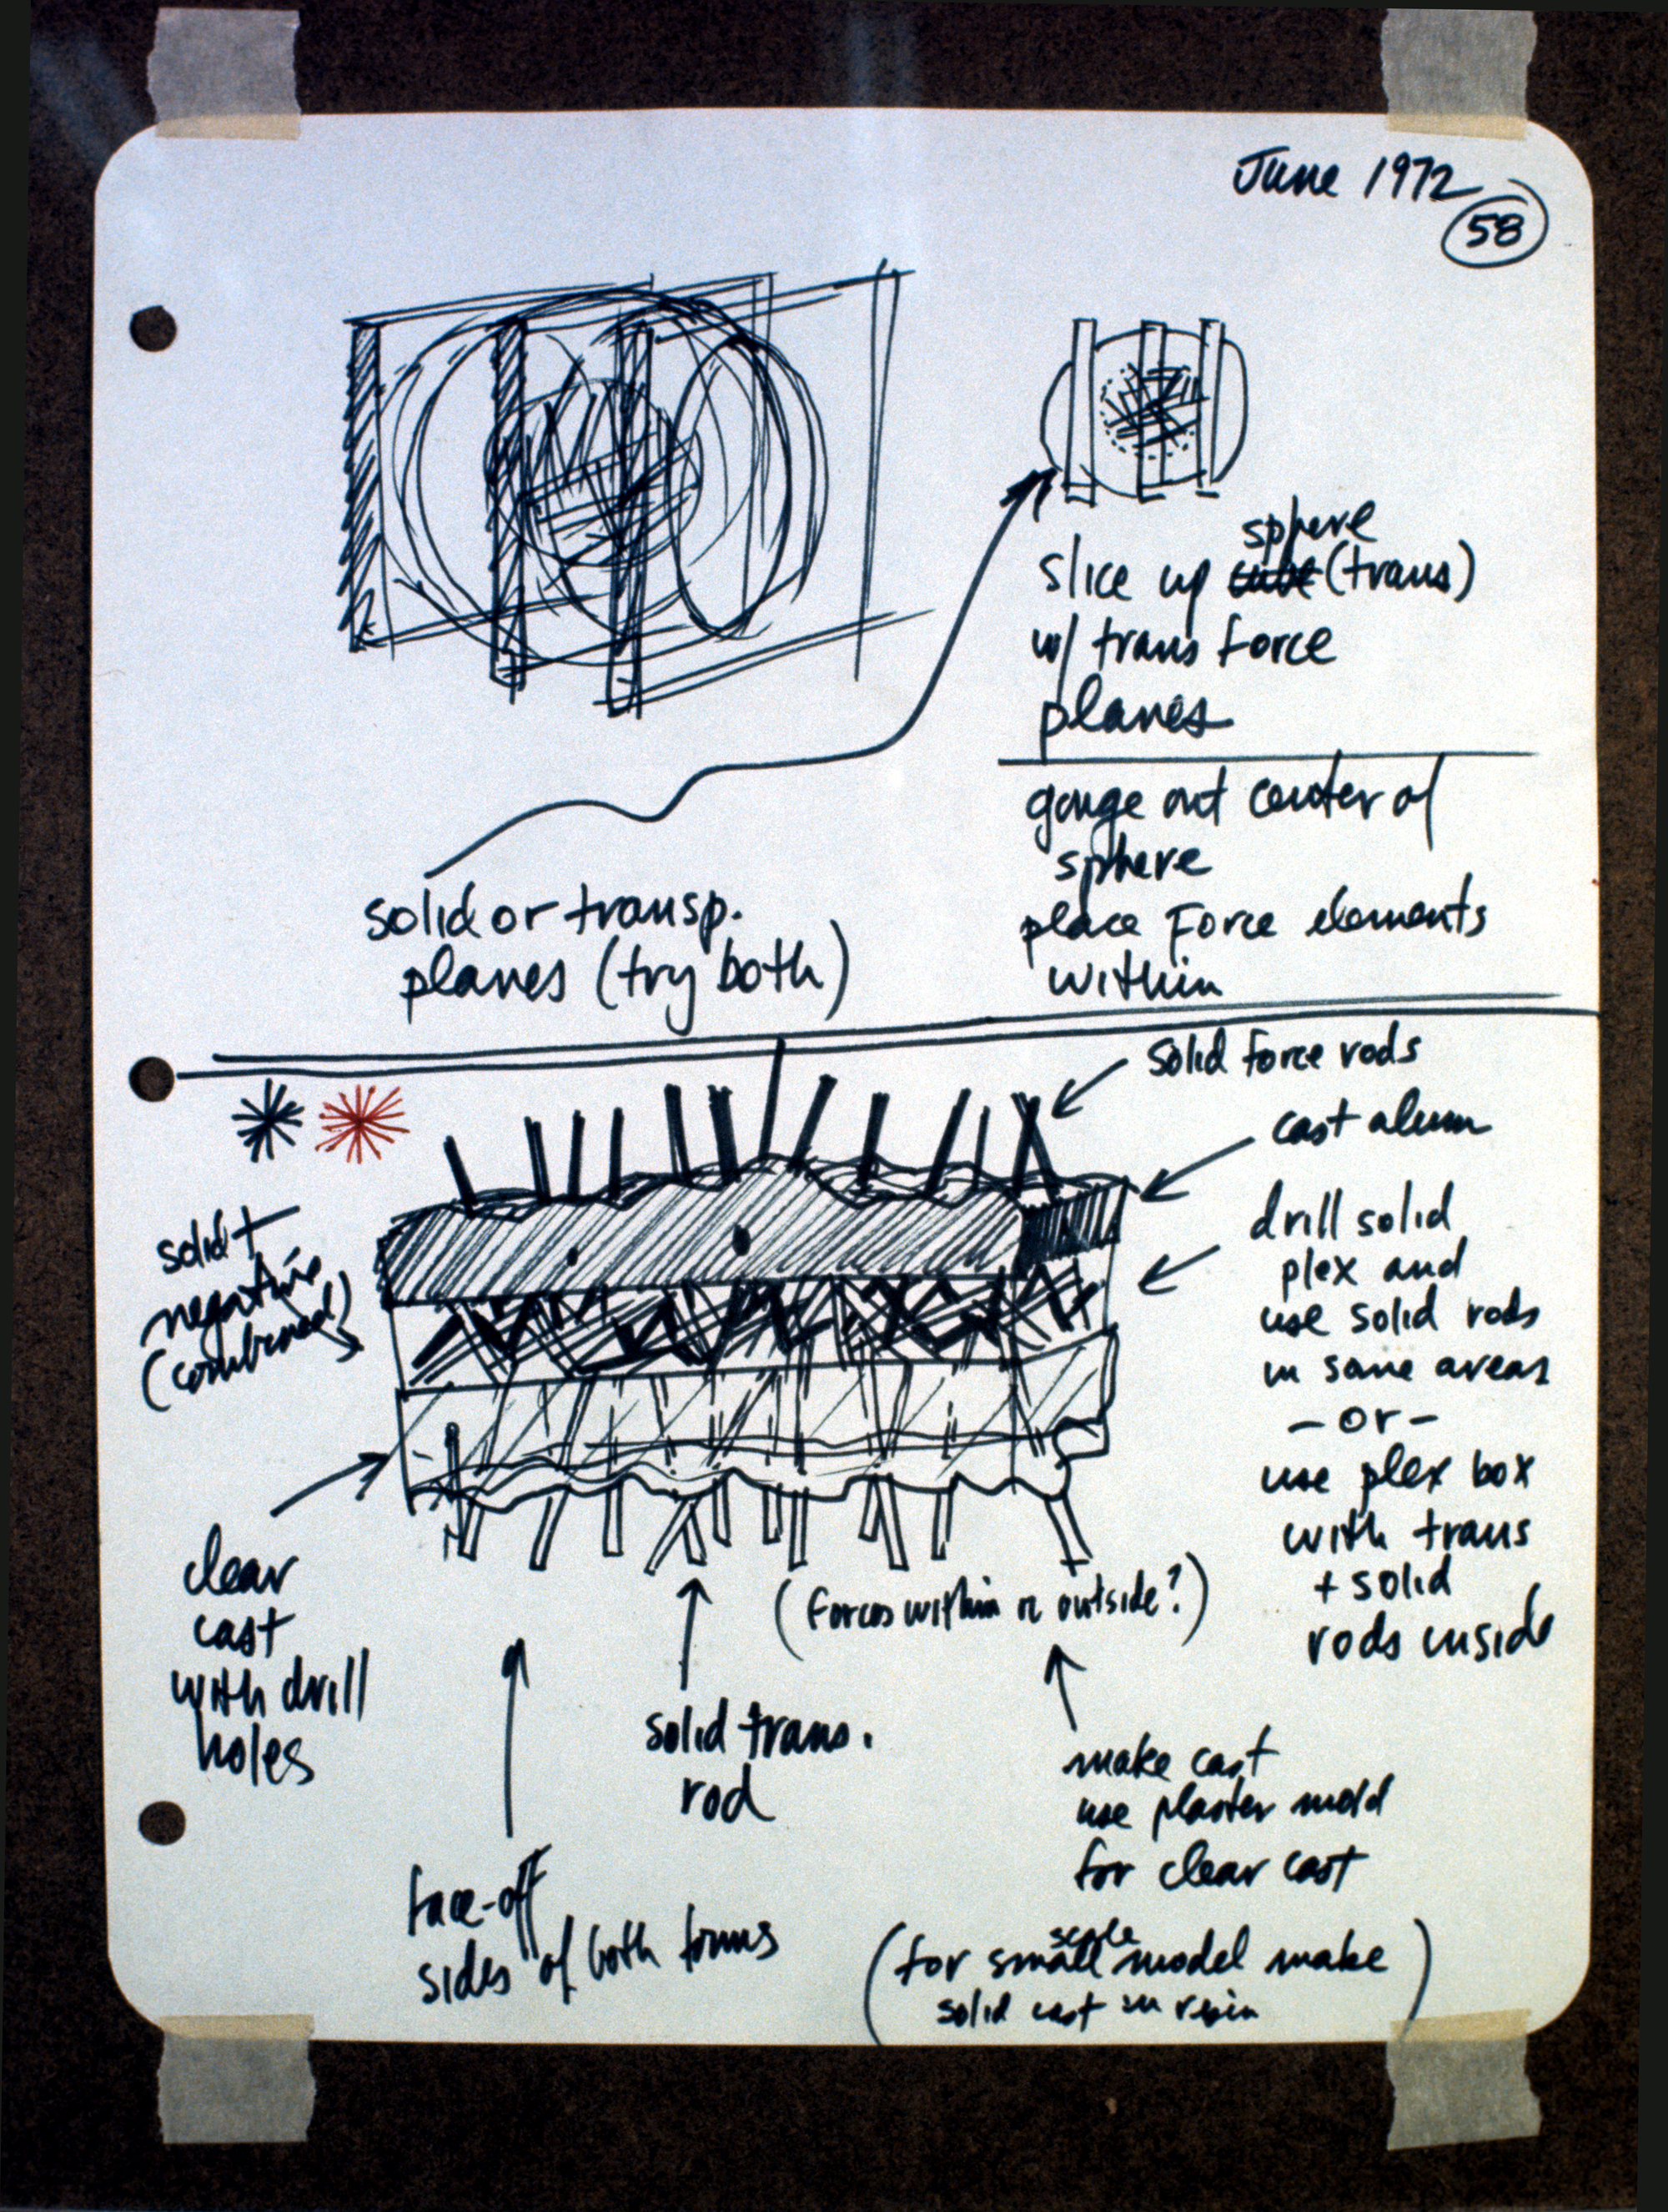 June 1972
58
sphere
slice up cube (trans)
w/ trans force
planes
gouge out center of
sphere
place Force elements
within
solid or transp.
planes (try both)
solid force rods
cast alum
drill solid
plex and
use solid rods
in same areas
- or -
use plex box
with trans
+ solid
rods inside
solid +
negative
(combined)
clear
cast
with drill
holes
(Forces within or outside?)
solid trans.
rod
make cast
use plaster mold
for clear cast
face-off
sides of both forms
scale
(for small model make
solid cast in resin)